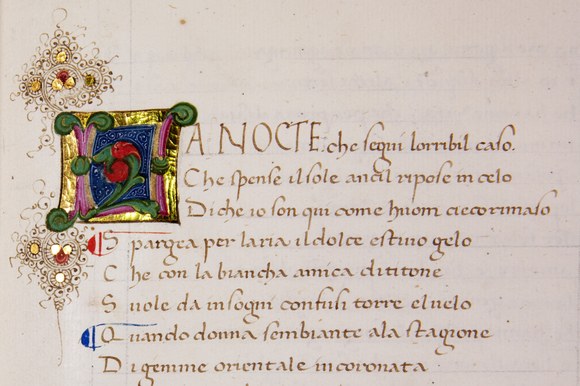 LA NOCTE che sequi lorribil caso.
Che spense il sole ancil ripose in celo
Di che io son qui come huom cieco rimaso
Spargea per laria il dolce estivo gelo
Che con la biancha amica dititone
Suole da insogni confusi torre el velo
Quando donna sembiante ala stagione
Di gemme orientale in coronata